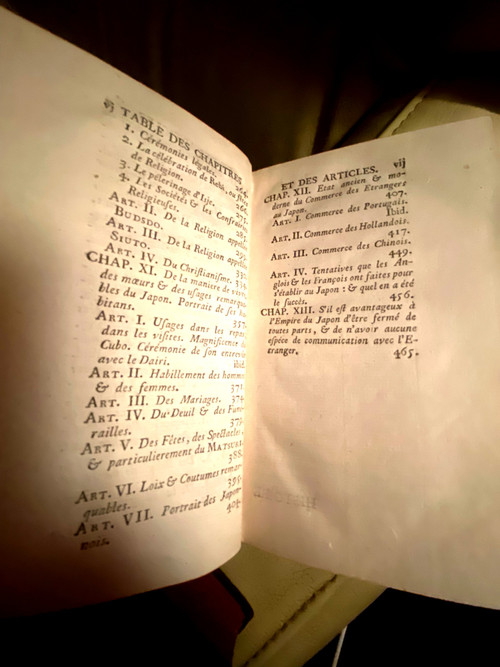 vj TABLE DES CHAPITRES
1. Cérémonies légales.
2. La célébration de Rebi, ou
de Religion. 264.
3. Le pélerinage d'Isje. 275.
4. Les Sociétés & les Confrairies
Religieuses.
ART. II. De la Religion appellée
BUDSDO.
ART. III. De la Religion appellée
SIUTO.
ART. IV. Du Christianisme.
CHAP. XI. De la maniere de vivre,
des mœurs & des usages remarqua-
bles du Japon. Portrait de ses ha-
bitans. 357.
ART. I. Usages dans les repas
dans les visites. Magnificence
Cubo. Cérémonie de son entrevue
avec le Dairi. ibid.
ART. II. Habillement des hommes
& des femmes. 371.
ART. III. Des Mariages. 374
ART. IV. Du Deuil & des Funé-
railles.
ART. V. Des Fêtes, des Spectacles,
& particulierement du MATSURI.
388.
ART. VI. Loix & Coutumes remar-
quables. 399.
ART. VII. Portrait des Japon-
nois. 404.
ET DES ARTICLES. vij
CHAP. XII. Etat ancien & mo-
derne du Commerce des Etrangers
au Japon. 407.
ART. I. Commerce des Portugais.
Ibid.
ART. II. Commerce des Hollandois.
417.
ART. III. Commerce des Chinois.
449.
ART. IV. Tentatives que les An-
glois & les François ont faites pour
s'établir au Japon : & quel en a été
le succès. 456.
CHAP. XIII. S'il est avantageux à
l'Empire du Japon d'être fermé de
toutes parts, & de n'avoir aucune
espèce de communication avec l'E-
tranger. 465.